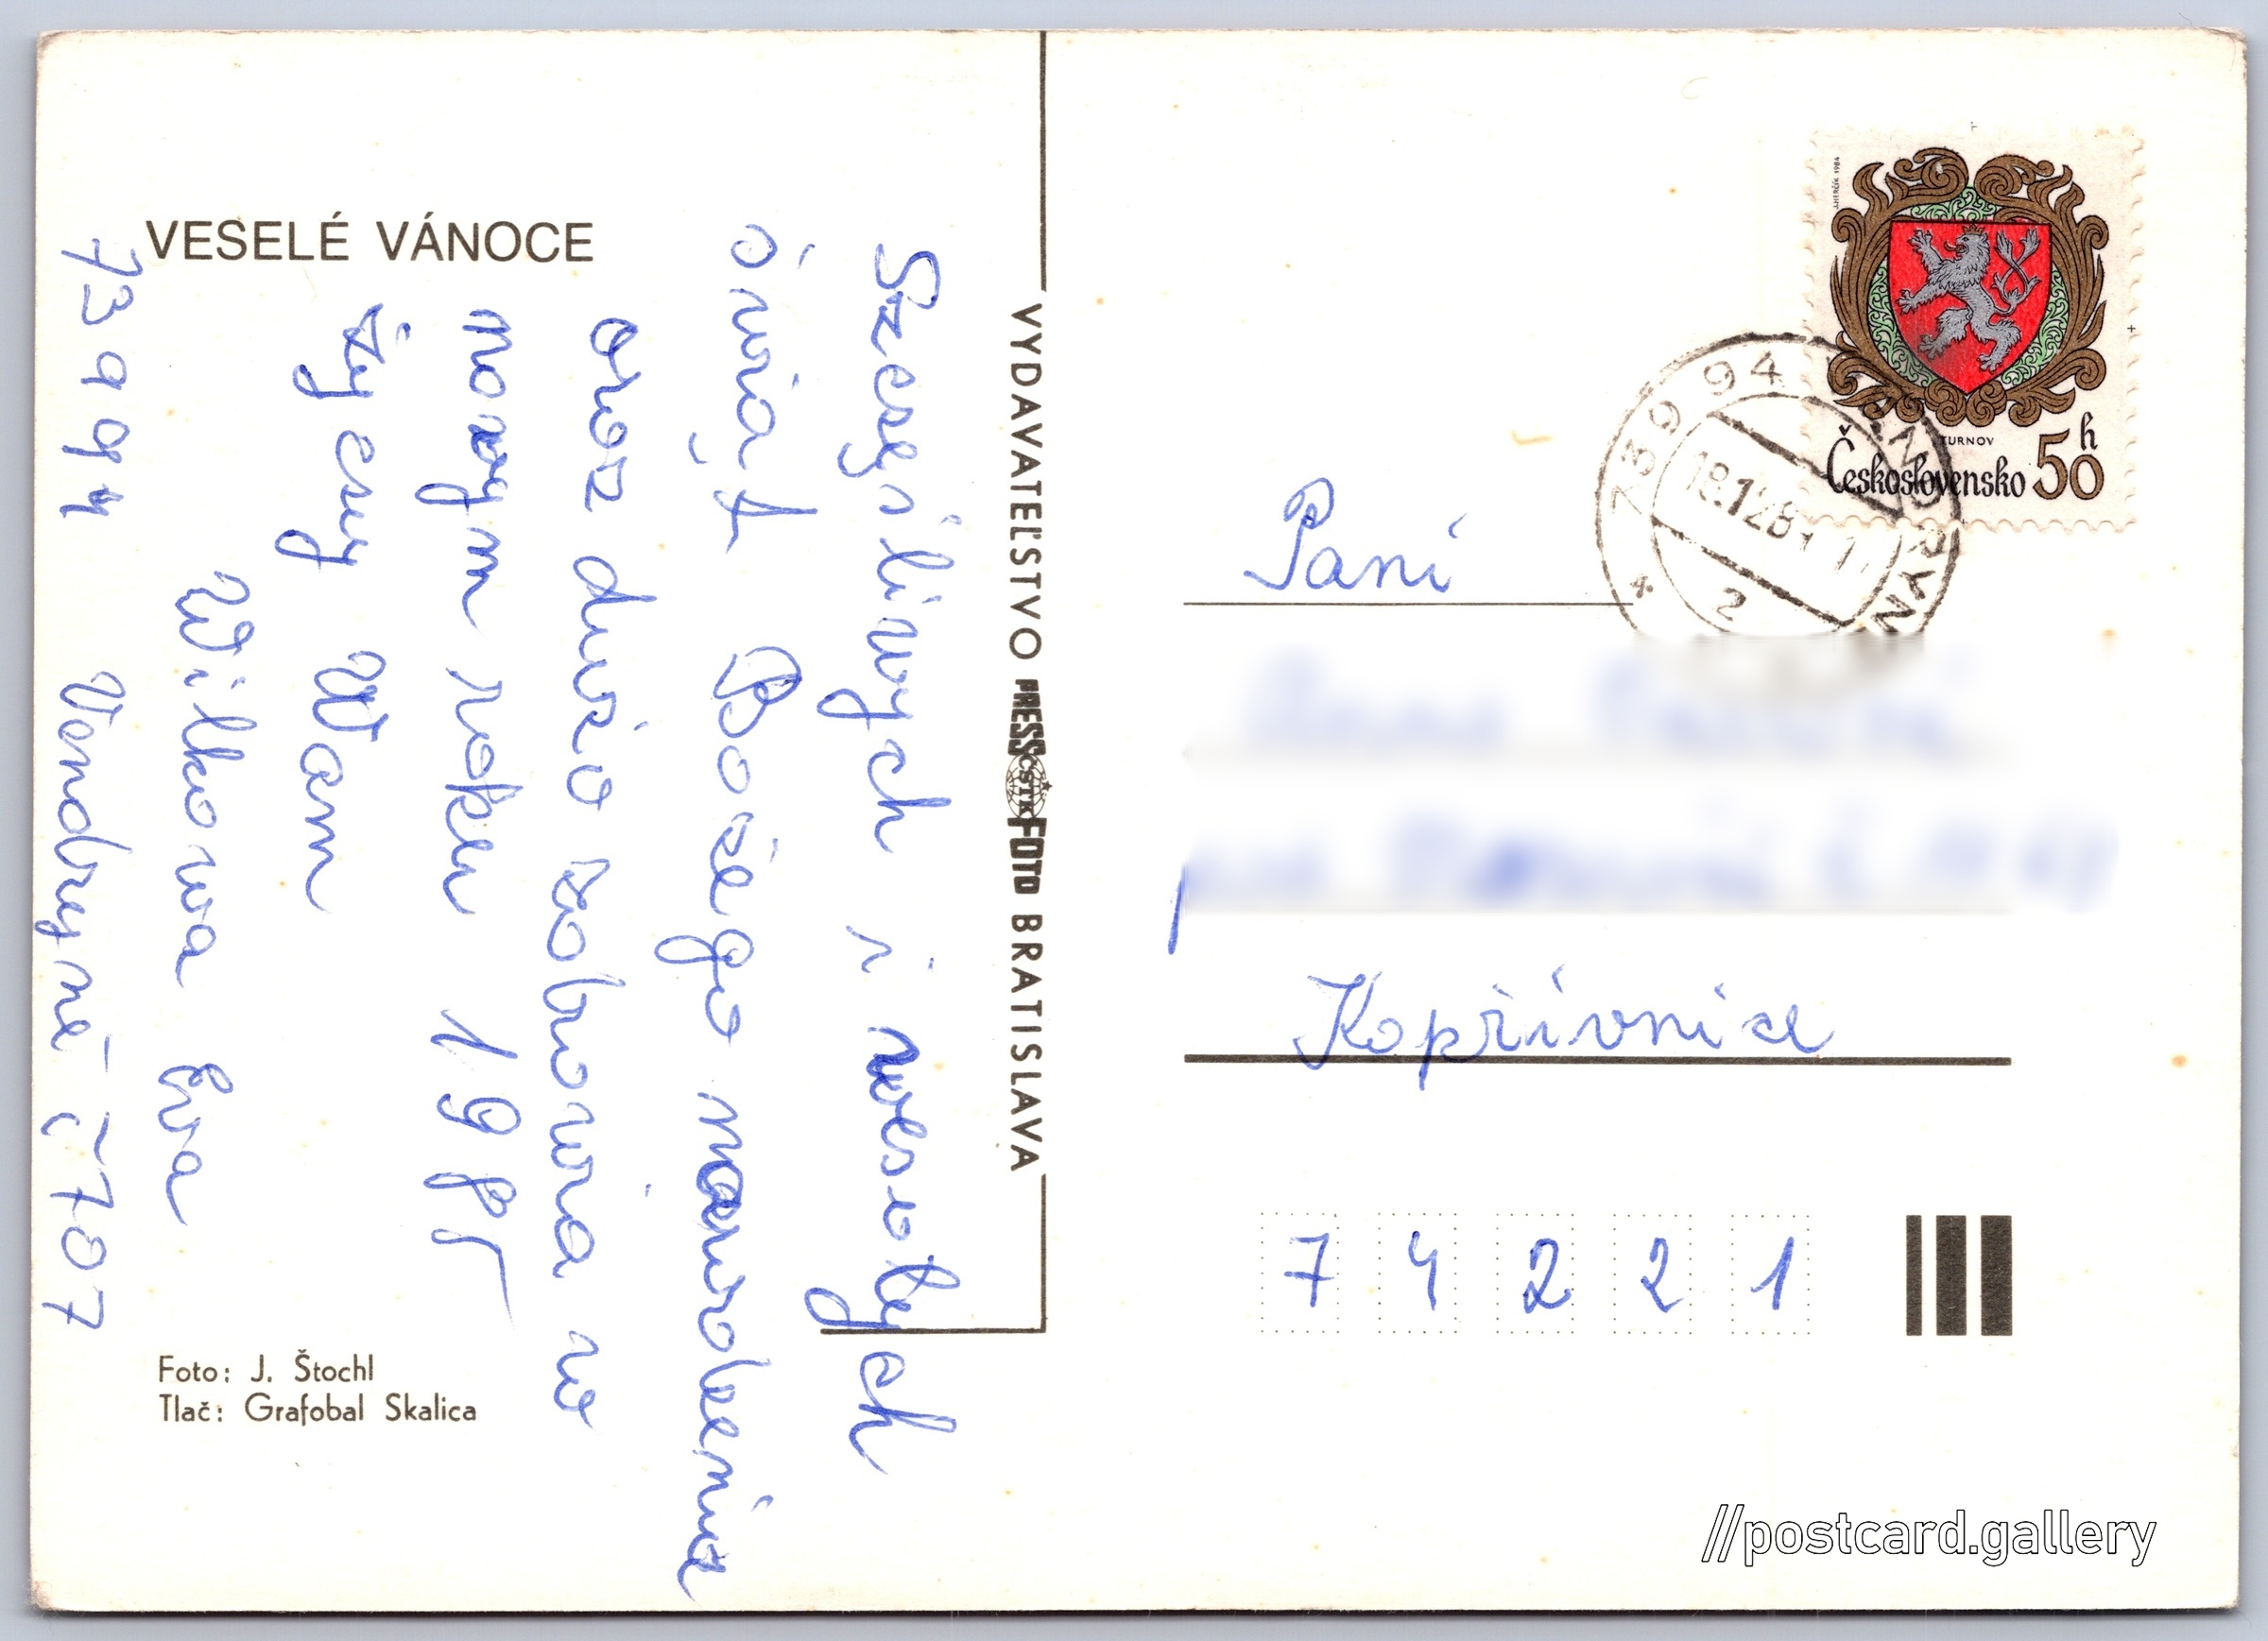 VESELÉ VÁNOCE
Szczęśliwych i wesołych
świąt Bożego narodzenia
oraz dużo zdrowia w
nowym roku 1985
życzy Wam
Wilkowa Eva
73994 Vendryně č 707
Foto: J. Štochl
Tlač: Grafobal Skalica
VYDAVATEĽSTVO PRESSFOTO BRATISLAVA
ČSTK
J.HERČÍK 1984
TURNOV
Československo 50 h
739 94
18.12.84
2
Paní
Kopřivnice
7 4 2 2 1
//postcard.gallery